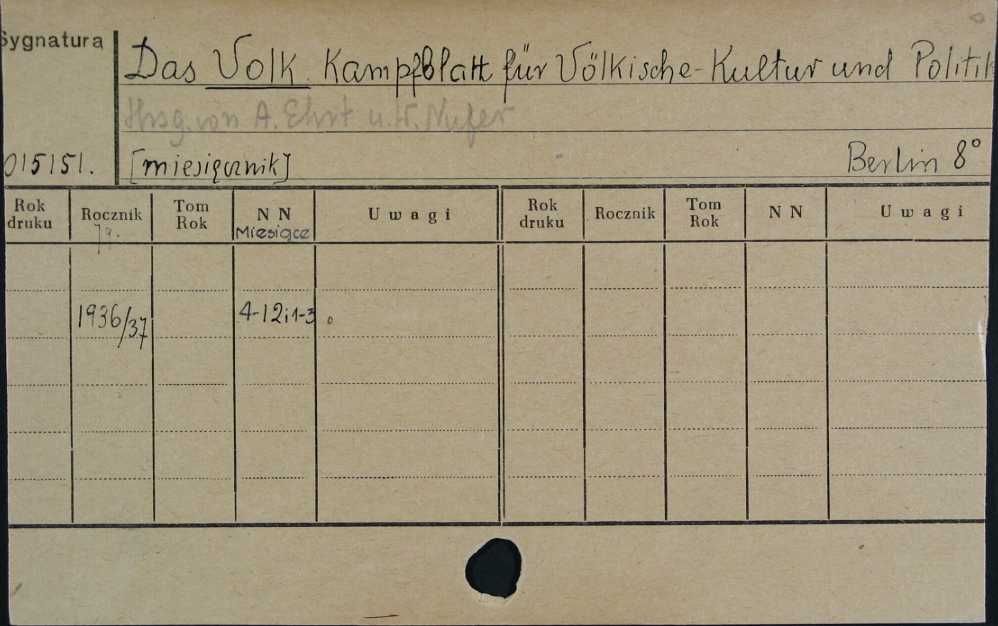 Sygnatura
Das Volk. Kampfblatt für Völkische-Kultur und Politik
Hrsg. von A. Ehrt u. W. Nufer
015151. [miesięcznik] Berlin 8°
Rok druku Rocznik Tom Rok N N Uwagi Rok druku Rocznik Tom Rok N N Uwagi
Jg. Miesiące
1936/37 4-12i1-3